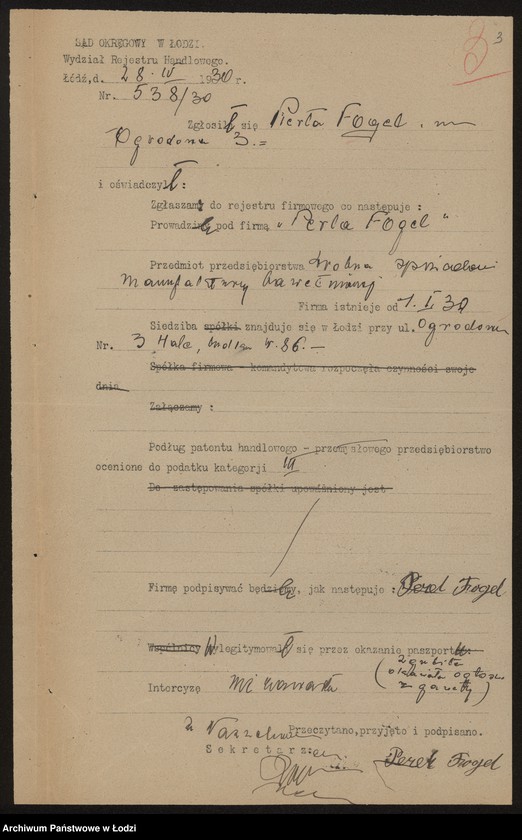 3
SĄD OKRĘGOWY W ŁODZI.
Wydział Rejestru Handlowego.
Łódź, d. 28. IV 1930 r.
Nr. 538/30
Zgłosił się Perla Fogel
Ogrodowa 3.=
i oświadczył:
Zgłaszam do rejestru firmowego co następuje :
Prowadzi pod firmą „Perla Fogel"
Przedmiot przedsiębiorstwa drobna sprzedaż
manufaktury bawełnianej
Firma istnieje od 1. I 30
Siedziba spółki znajduje się w Łodzi przy ul. Ogrodowa
Nr. 3 Hale, 86. —
Spółka firmowa - komandytowa rozpoczęła czynności swoje
dnia
Załączamy :
Podług patentu handlowego - przemysłowego przedsiębiorstwo
ocenione do podatku kategorji III
Do zastępowania spółki upoważniony jest
Firmę podpisywać będzie, jak następuje :
Wspólnicy Wylegitymował się przez okazanie paszportu:
(zgubiła
okazała ogłosz.
z gazetty)
Intercyzę nie zawarła
Przeczytano, przyjęto i podpisano.
Sekretarz:
Archiwum Państwowe w Łodzi